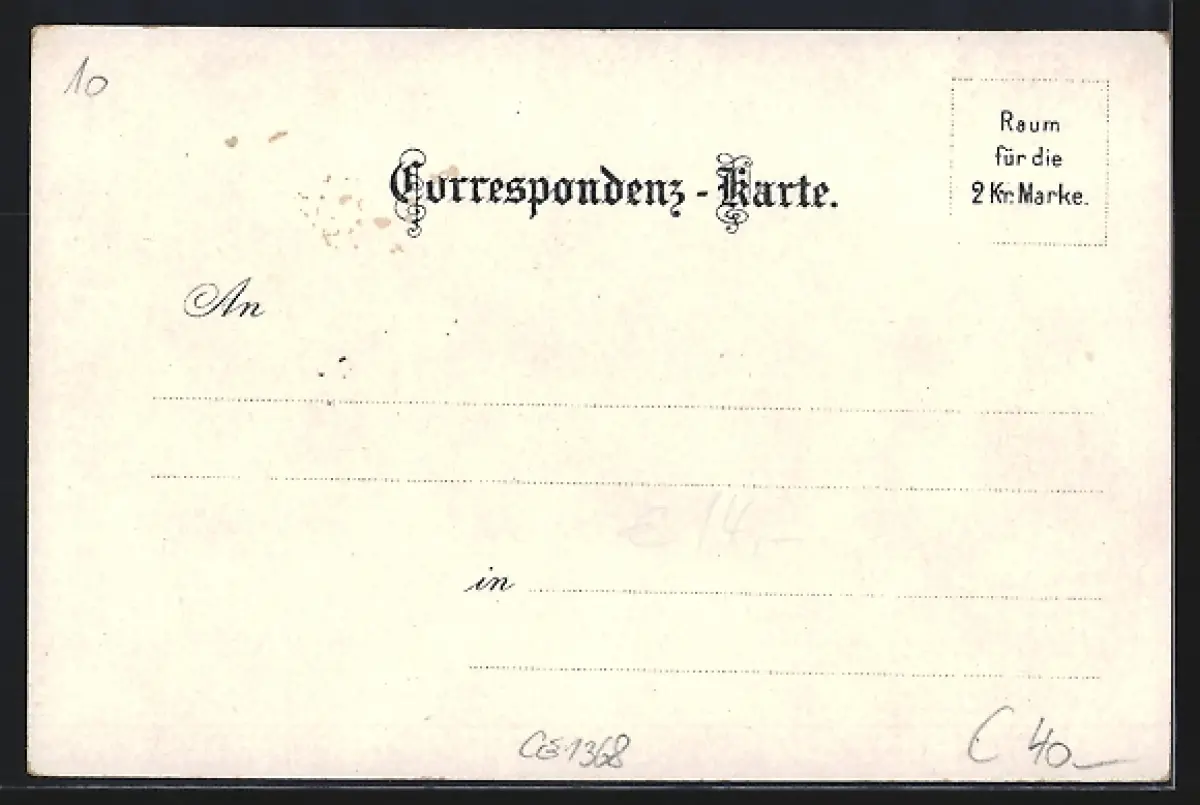 10
Raum
für die
2 Kr. Marke.
Correspondenz-Karte.
An
€ 14,-
in
CE1368
C 40—